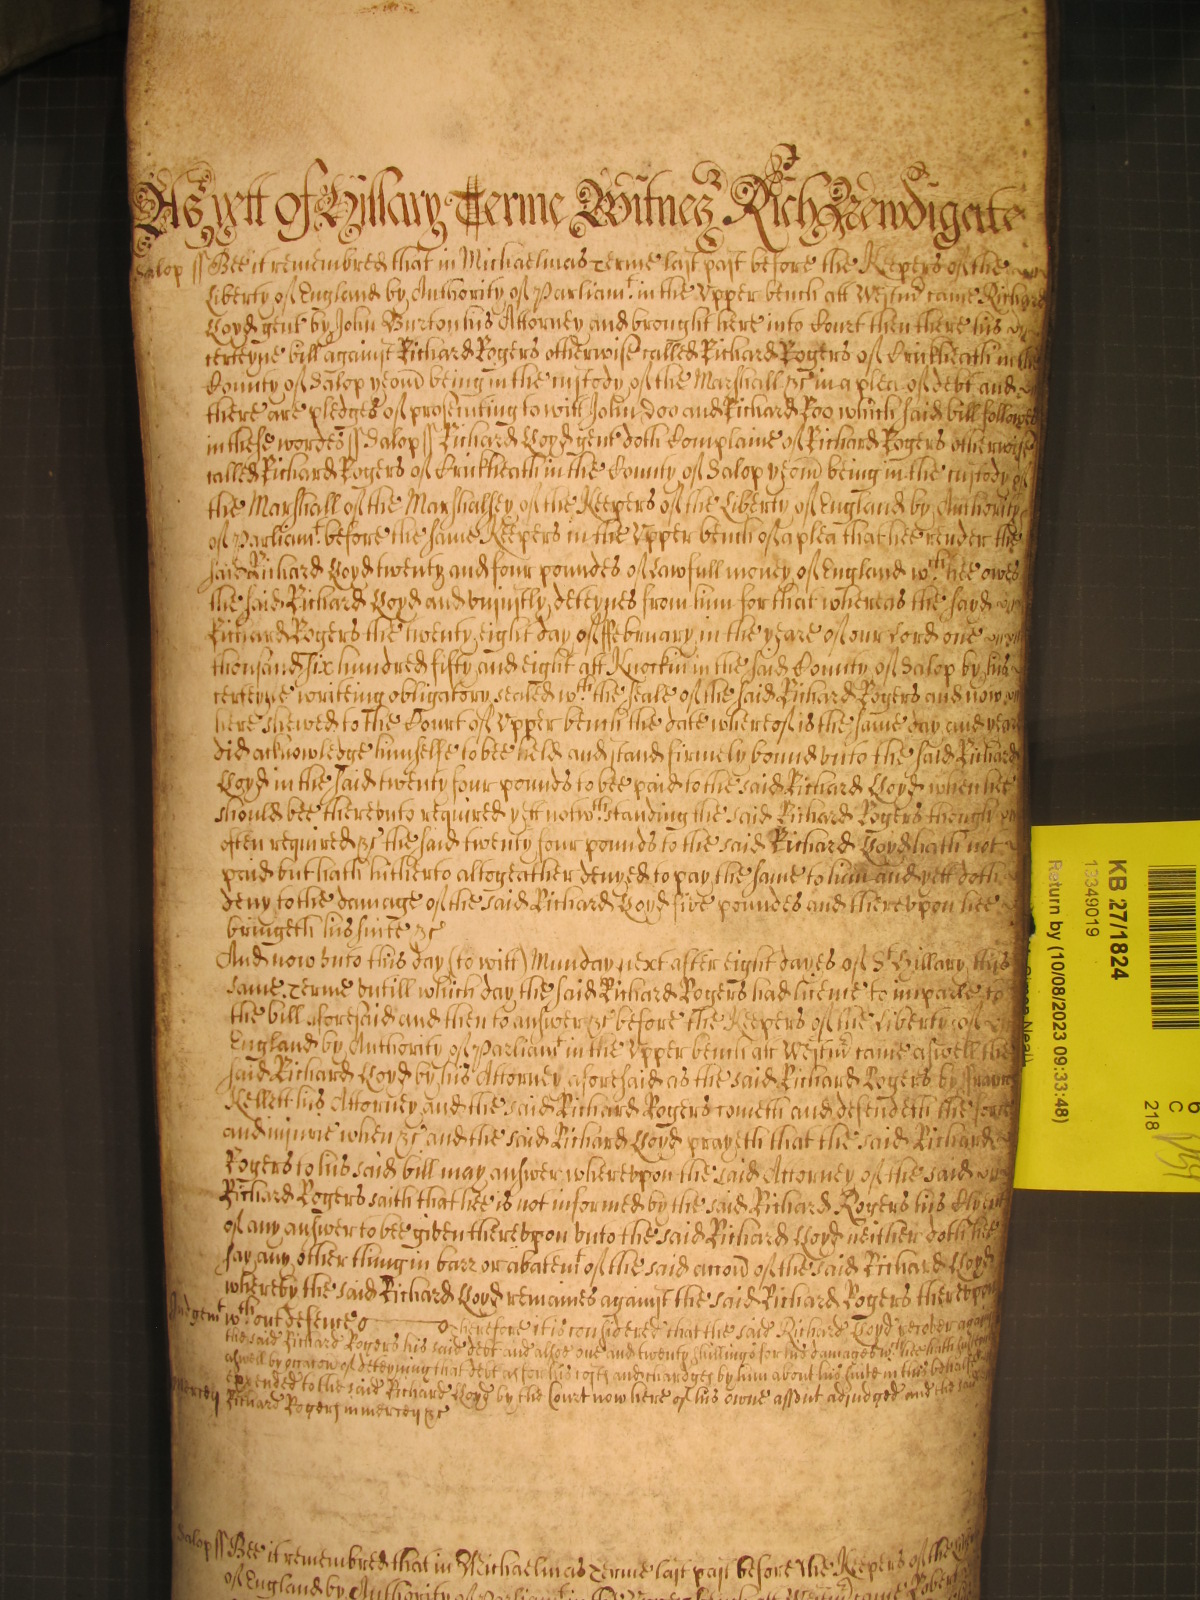 As yett of Hillary Terme Witnes Rich Newdigate
Salop ss Bee it remembred that in Michaelmas Terme last past before the Keepers of the
Liberty of England by Authority of Parliamt in the Upper bench att Westm came Richard
Loyd gent by John Burton his Attorney and brought here into Court then there his
certeyne bill against Richard Rogers otherwise called Richard Rogers of Crickheath in the
County of Salop yeom being in the custody of the Marshall &c in a plea of debt and
there are pledges of prosecuting to witt John Doo and Richard Roo which said bill followes
in these wordes ss Salop ss Richard Loyd gent doth Complaine of Richard Rogers otherwise
called Richard Rogers of Crickheath in the County of Salop yeom being in the custody of
the Marshall of the Marshalsey of the Keepers of the Liberty of England by Authority
of Parliamt before the same Keepers in the Upper bench of a plea that hee render the
said Richard Loyd twenty and four poundes of Lawfull money of England wch hee owes
the said Richard Loyd and uniustly deteynes from him for that whereas the sayd
Richard Rogers the twenty eight day of ffebruary in the yeare of our Lord one
thousand six hundred fifty and eight att Knockin in the said County of Salop by his
certeyne writeing obligatory sealed wth the seale of the said Richard Rogers and now
here shewed to the Court of Upper bench the date whereof is the same day and yeare
did acknowledge himselfe to bee held and stand firmely bound unto the said Richard
Loyd in the said twenty four pounds to bee paid to the said Richard Loyd when hee
should bee thereunto required yett notwthstanding the said Richard Rogers though
often required &c the said twenty four pounds to the said Richard Loyd hath not
paid but hath hitherto altogeather denyed to pay the same to him and yett doth
deny to the damage of the said Richard Loyd five poundes and thereupon hee
bringeth his suite &c
And now unto this day (to witt) Munday next after eight dayes of St Hillary this
same Terme untill which day the said Richard Rogers had licence to imparle to
the bill aforesaid and then to answer &c before the Keepers of the Liberty of
England by Authority of Parliamt in the Upper bench att Westm came aswell the
said Richard Loyd by his Attorney aforesaid as the said Richard Rogers by ffrancis
Kellett his Attorney and the said Richard Rogers cometh and defendeth the force
and iniurie when &c and the said Richard Loyd prayeth that the said Richard
Rogers to his said bill may answer whereupon the said Attorney of the said
Richard Rogers saith that hee is not informed by the said Richard Rogers his Clyent
of any answer to bee given thereupon unto the said Richard Loyd neither doth hee
say any other thing in barr or abatemt of the said accon of the said Richard Loyd
whereby the said Richard Loyd remaines against the said Richard Rogers thereupon
Judgemt wthout defence Therefore it is considered that the said Richard Loyd recover against
the said Richard Rogers his said debt and alsoe one and twenty shillings for his damages wch hee hath
aswell by occacon of deteyning that debt as for his costs and chardges by him about his suite in this behalfe
expended to the said Richard Loyd by the Court now here of his owne assent adjudged and the said
mercy Richard Rogers in mercy &c
Salop ss Bee it remembred that in Michaelmas Terme last past before the Keepers of the
of England by Authority of Parliamt in the Upper bench att Westm came Robert
KB 27/1824
13349019
Return by (10/08/2023 09:33:48)
C
218